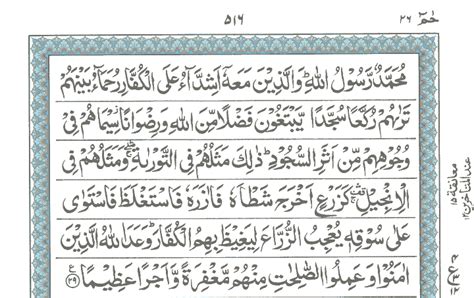 حٰمٓ ٢٦
٥١٦
مُحَمَّدٌ رَّسُوْلُ اللّٰهِ ؕ وَالَّذِيْنَ مَعَهٗۤ اَشِدَّآءُ عَلَى الْكُفَّارِ رُحَمَآءُ بَيْنَهُمْ
تَرٰىهُمْ رُكَّعًا سُجَّدًا يَّبْتَغُوْنَ فَضْلًا مِّنَ اللّٰهِ وَرِضْوَانًا ؗ سِيْمَاهُمْ فِيْ
وُجُوْهِهِمْ مِّنْ اَثَرِ السُّجُوْدِ ؕ ذٰلِكَ مَثَلُهُمْ فِي التَّوْرٰىةِ ۛۖۚ وَمَثَلُهُمْ فِي
الْاِنْجِيْلِ ۛۚ كَزَرْعٍ اَخْرَجَ شَطْـَٔهٗ فَاٰزَرَهٗ فَاسْتَغْلَظَ فَاسْتَوٰى
عَلٰى سُوْقِهٖ يُعْجِبُ الزُّرَّاعَ لِيَغِيْظَ بِهِمُ الْكُفَّارَ ؕ وَعَدَ اللّٰهُ الَّذِيْنَ
اٰمَنُوْا وَعَمِلُوا الصّٰلِحٰتِ مِنْهُمْ مَّغْفِرَةً وَّاَجْرًا عَظِيْمًا ۝٢٩
معانقة ١٥
عند المتاخرين ١٢